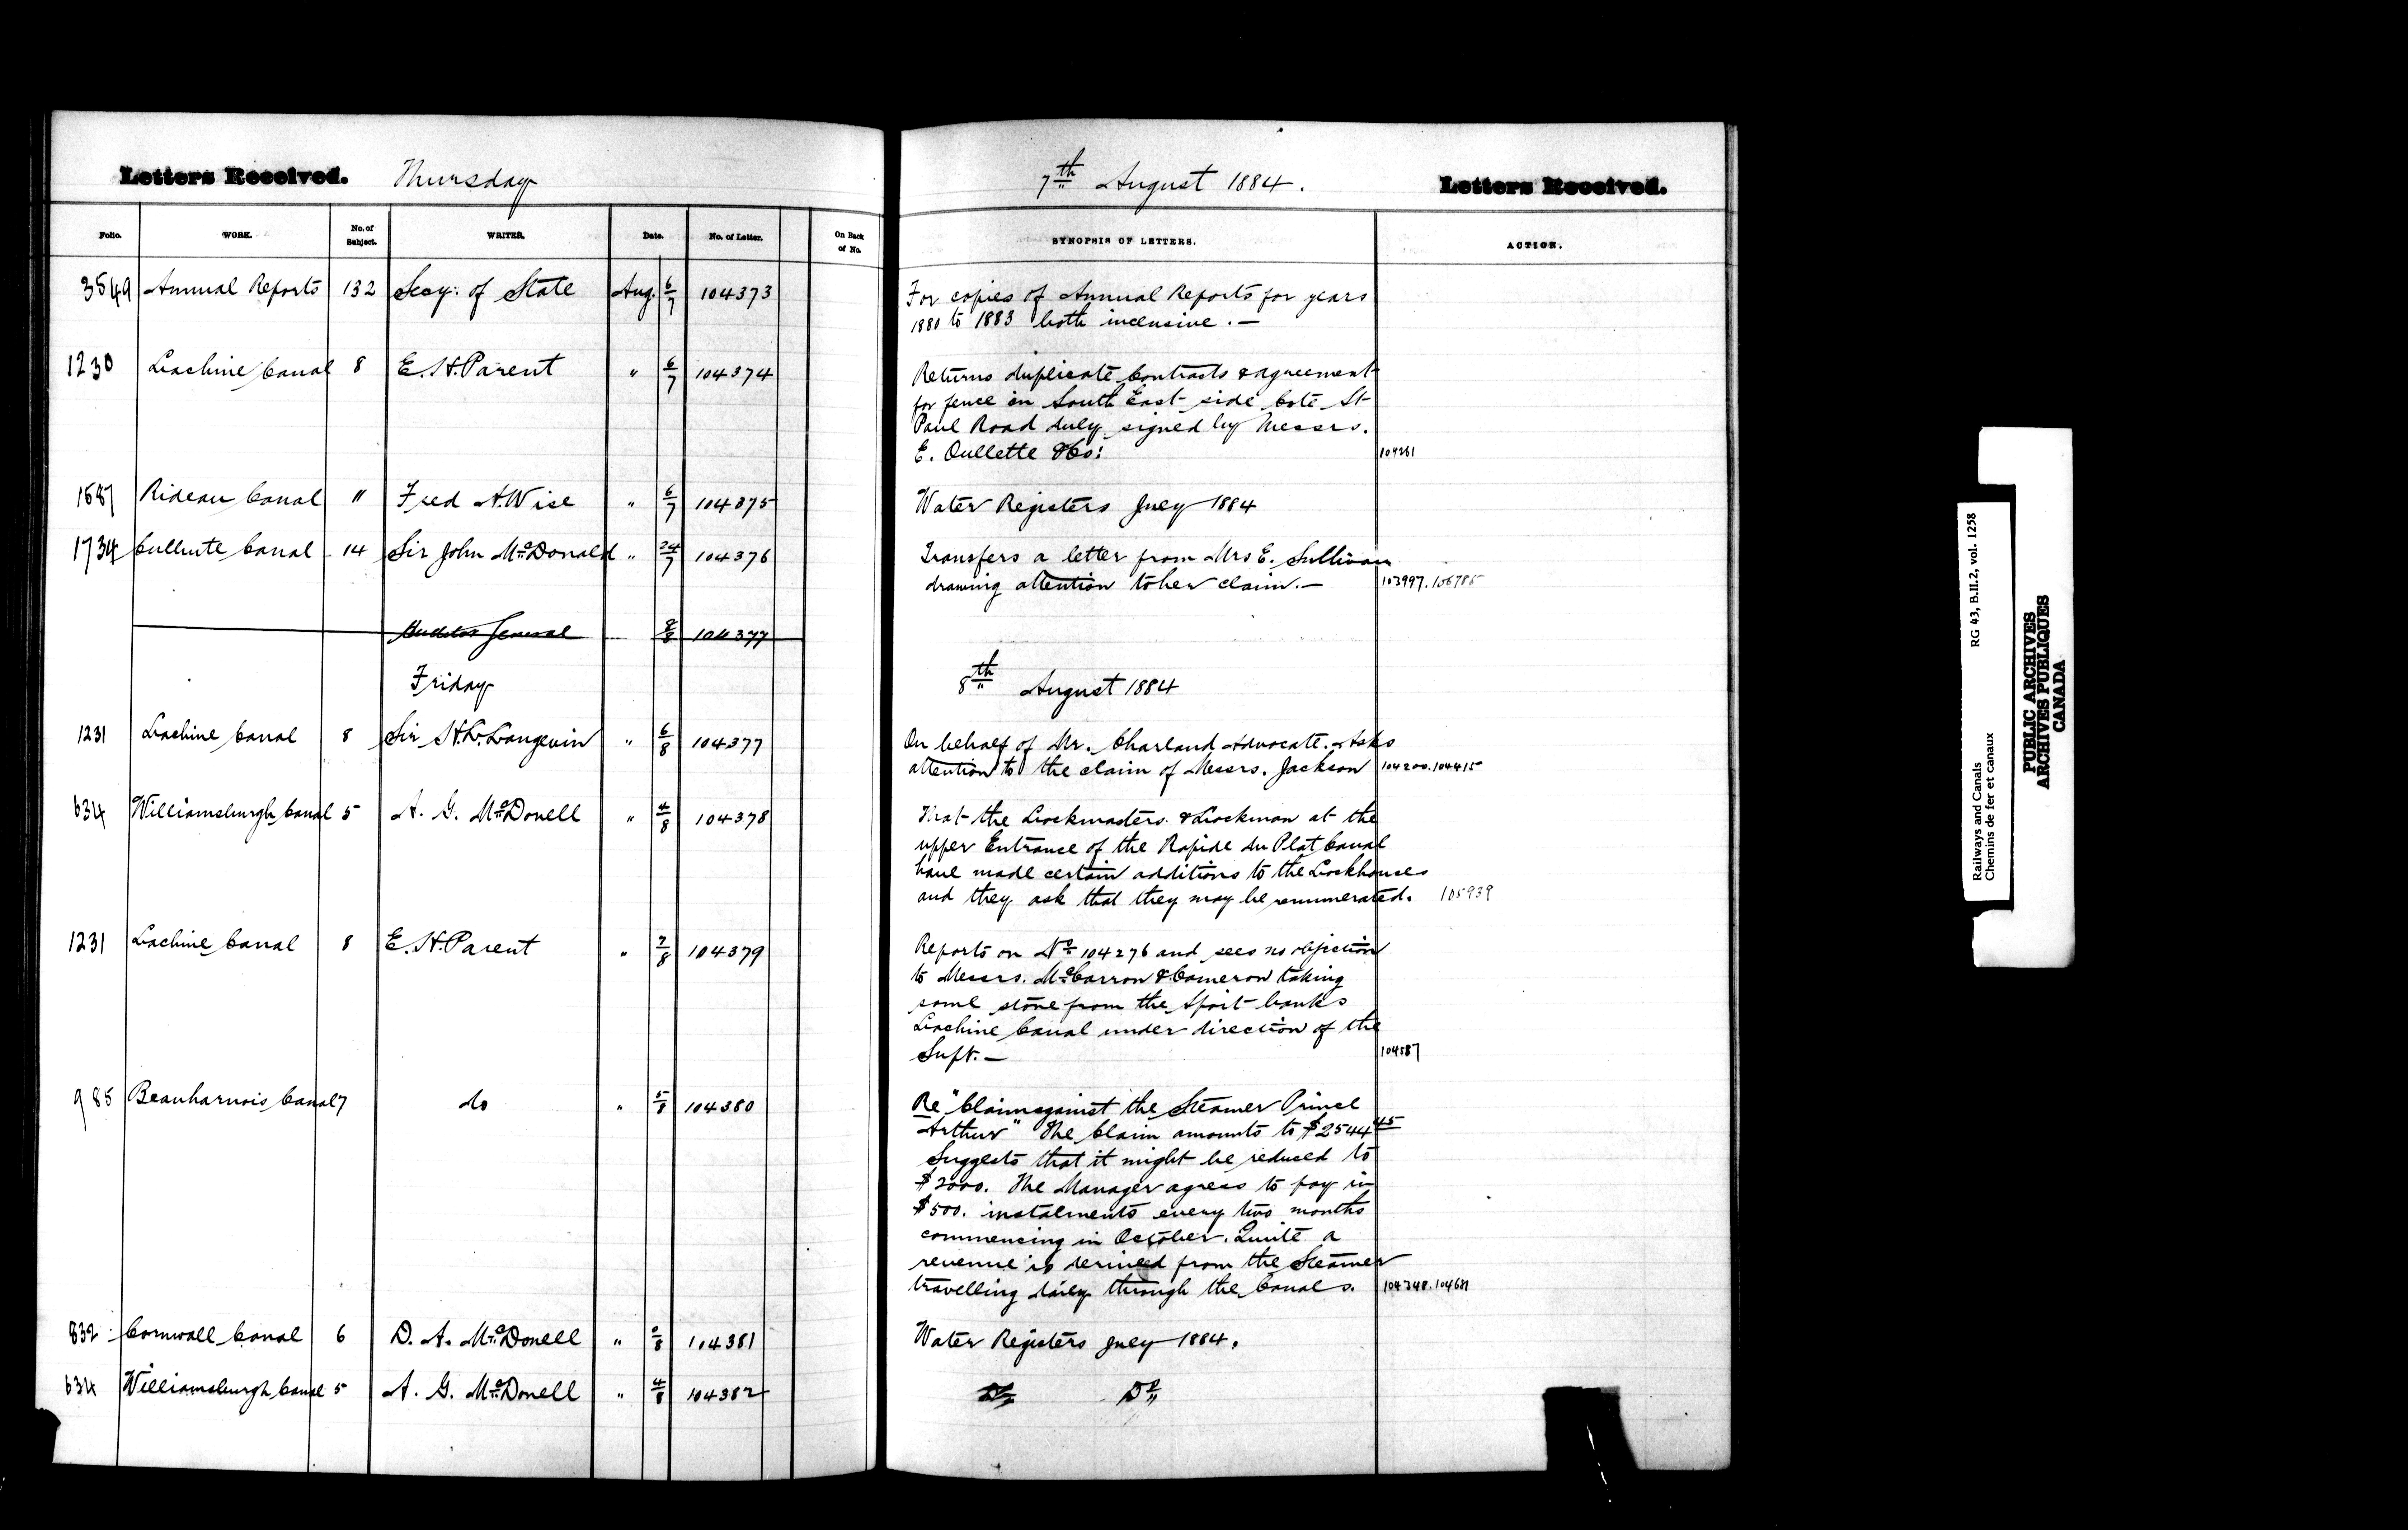 Letters Received. Thursday 7th August 1884. Letters Received.
Folio. WORK. No. of Subject. WRITER. Date. No. of Letter. On Back of No. SYNOPSIS OF LETTERS. ACTION.
3549 Annual Reports 132 Secy: of State Aug. 6/7 104373 For copies of Annual Reports for years
1880 to 1883 both inclusive. —
1230 Lachine Canal 8 E. H. Parent " 6/7 104374 Returns duplicate Contracts & agreement
for fence on South East side Cote St
Paul Road duly signed by Messrs.
E. Oullette & Co: 104281
1687 Rideau Canal 11 Fred A. Wise " 6/7 104375 Water Registers July 1884
1734 Cullbute Canal 14 Sir John McDonald " 24/7 104376 Transfers a letter from Mrs E. Sullivan
drawing attention to her claim. — 103997. 106785
Auditor General 8/8 104377
Friday 8th August 1884
1231 Lachine Canal 8 Sir H. L. Langevin " 6/8 104377 On behalf of Mr. Charland Advocate. Asks
attention to the claim of Messrs. Jackson 104200. 104415
634 Williamsburgh Canal 5 A. G. McDonell " 4/8 104378 That the Lockmasters & Lockman at the
upper Entrance of the Rapide du Plat Canal
have made certain additions to the Lockhouses
and they ask that they may be remunerated. 105939
1231 Lachine Canal 8 E. H. Parent " 7/8 104379 Reports on No 104276 and sees no objection
to Messrs. McCarron & Cameron taking
some stone from the Spoit banks
Lachine Canal under direction of the
Supt. — 104587
985 Beauharnois Canal 7 do " 5/8 104380 Re "Claim against the Steamer Prince
Arthur" The Claim amounts to $2544 45
Suggests that it might be reduced to
$2000. The Manager agrees to pay in
$500. instalments every two months
commencing in October. Quite a
revenue is derived from the Steamer
travelling daily through the Canals. 104348.
832 Cornwall Canal 6 D. A. McDonell " 104381 Water Registers July 1884.
634 Williamsburgh Canal 5 A. G. McDonell " 4/8 104382 Do Do
Railways and Canals RG 43, B.II.2, vol. 1258
Chemins de fer et canaux
PUBLIC ARCHIVES
ARCHIVES PUBLIQUES
CANADA